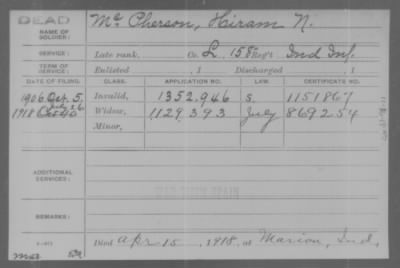 DEAD
NAME OF SOLDIER: Mc Pherson, Hiram N.
SERVICE: Late rank, Co. L, 158 Reg't Ind Inf.
TERM OF SERVICE: Enlisted , 1 Discharged , 1
DATE OF FILING. CLASS. APPLICATION NO. LAW. CERTIFICATE NO.
1906 Oct. 5. Invalid, 1352.946 S. 1151867
1918 July 26 Widow, 1129.393 July 869254
Minor,
ADDITIONAL SERVICES:
WAR WITH SPAIN
REMARKS:
Died Apr 15, 1918, at Marion, Ind,